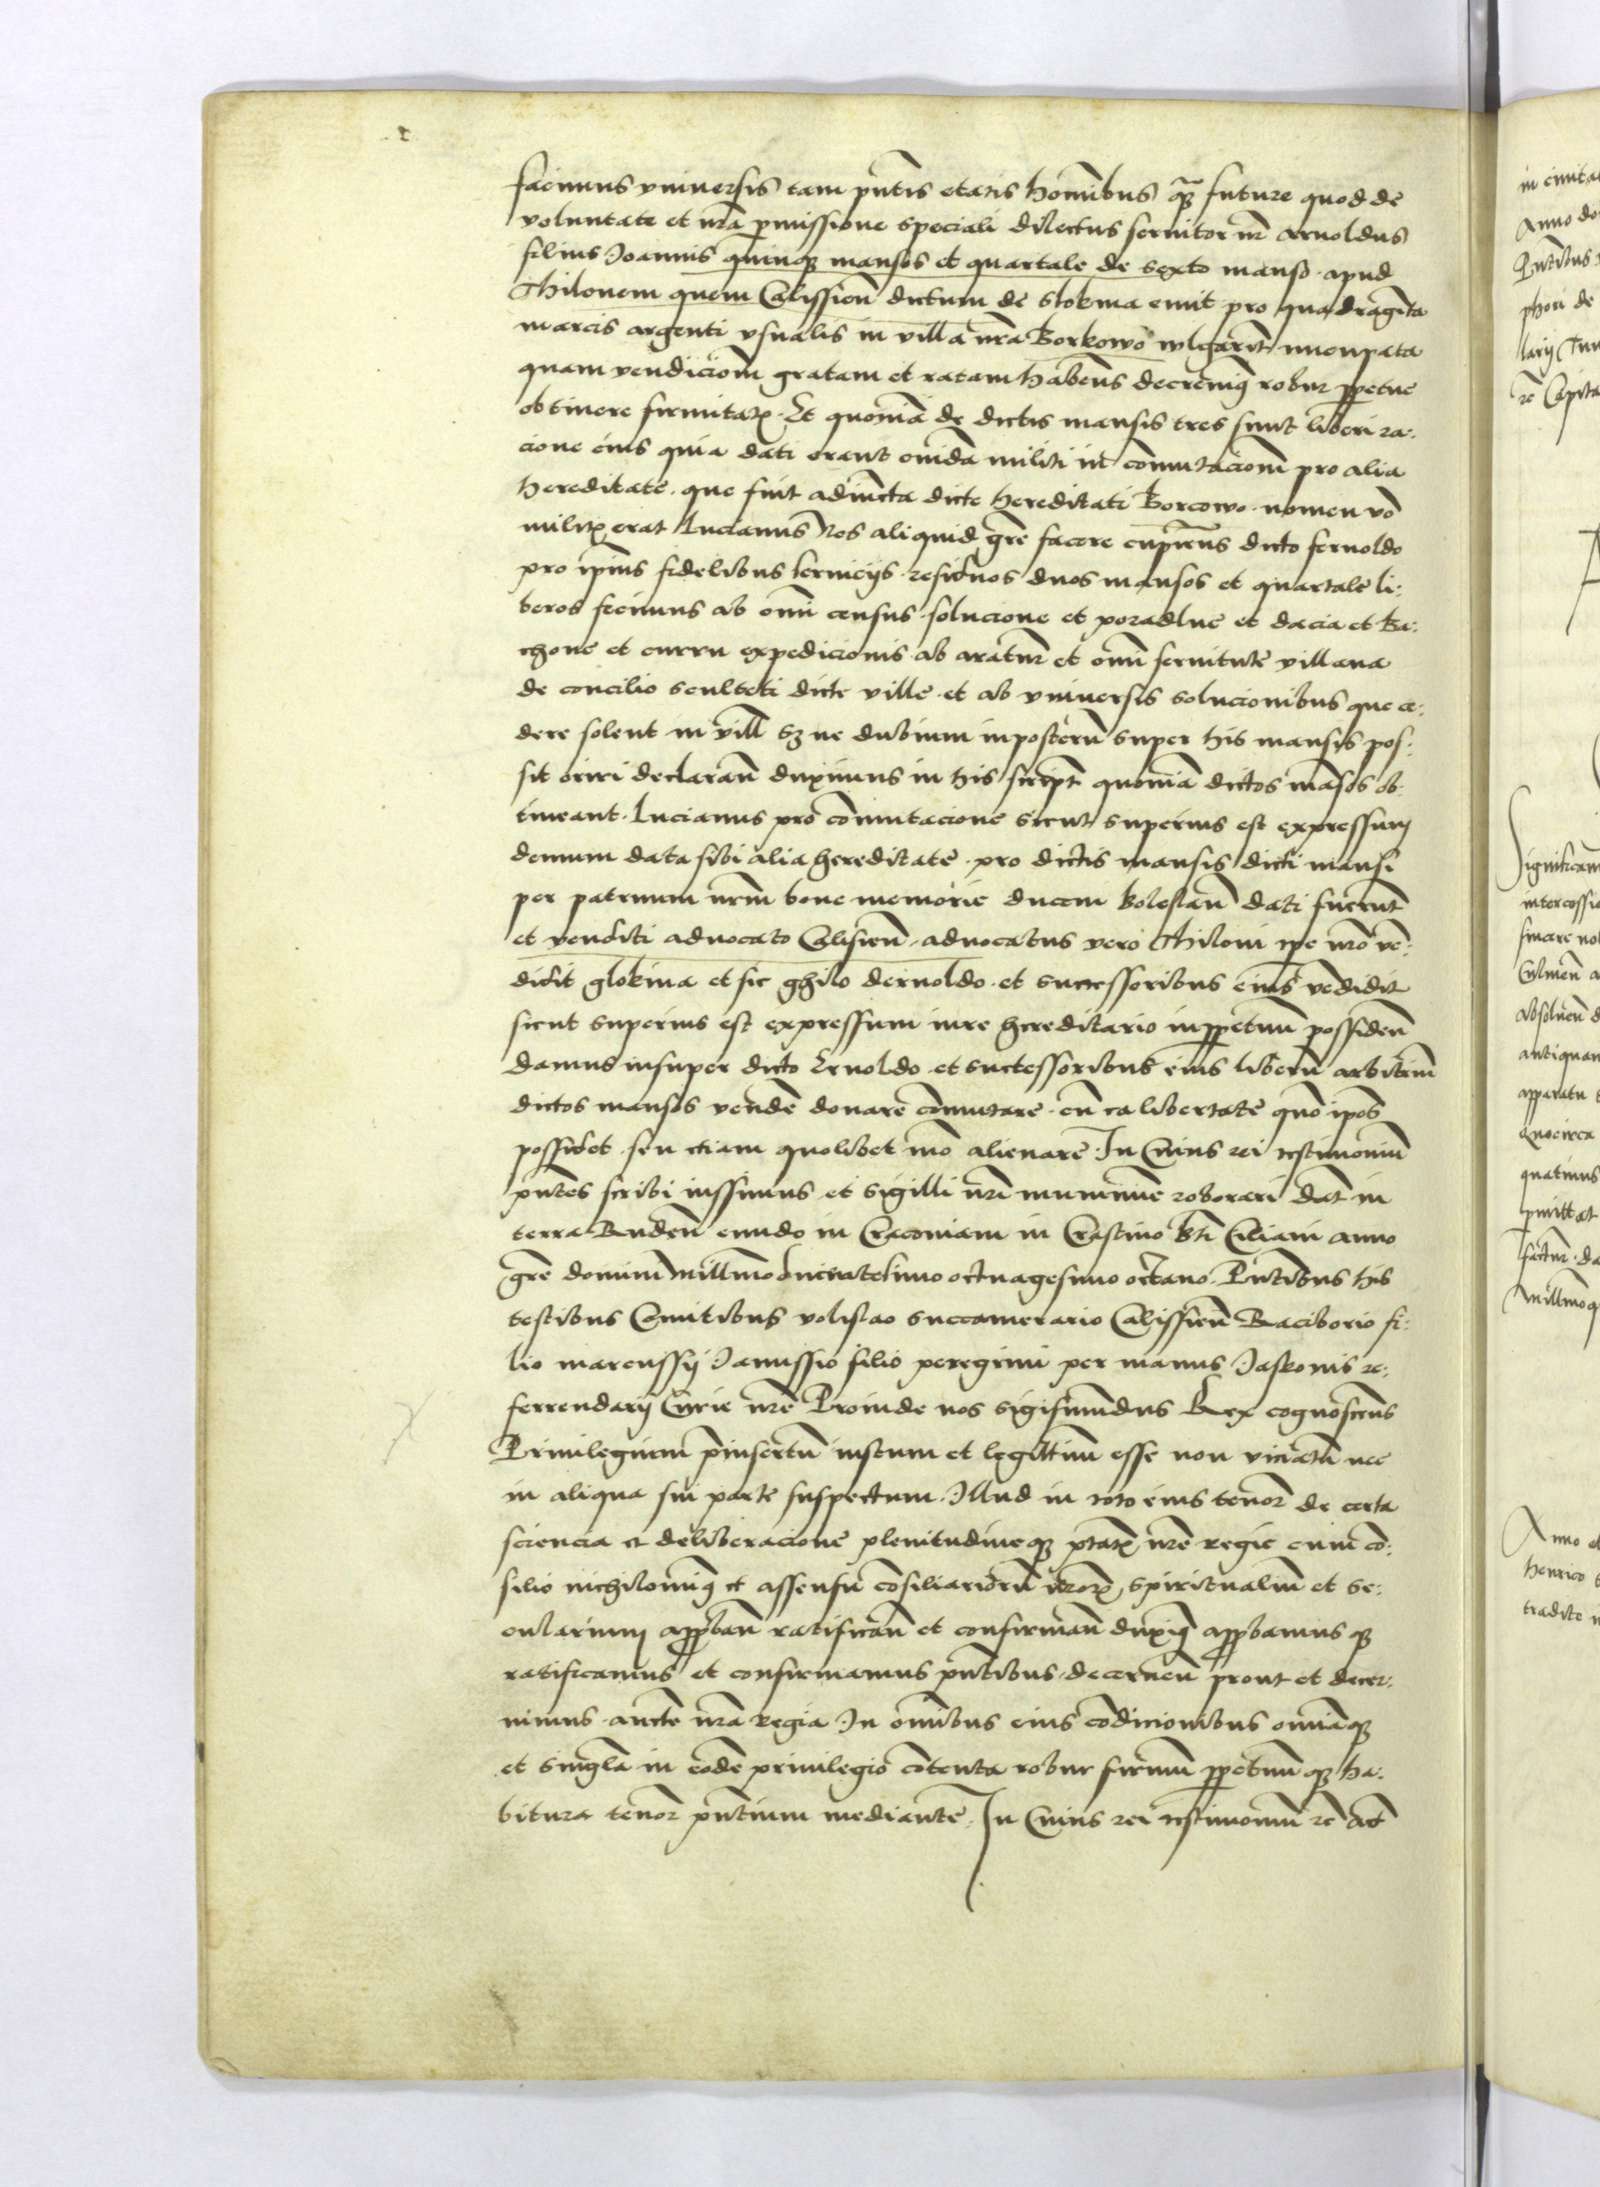 facimus vniuersis tam pn̄tis etatis hom̄ibus q̃ȝ future quod de
voluntate et nr̄a pmissione speciali dilectus seruitor nr̄ Arnoldus
filius Joannis quinqȝ mansos et quartale de sexto manso apud
Thilonem quem Calissien̄ dictum de Slokma emit pro quadragīta
marcis argenti vsualis in villa nr̄a Borkowo wlgarit̄ nuncupata
quam vendiciōm gratam et ratam habens decreuimꝰ robur ppetue
obtinere firmitatꝭ Et quoniā de dictis mansis tres sunt liberi ra:
cione eius quia dati erant cuidā militi in cōmutaciōm pro alia
hereditate que fuit adiūcta dicte hereditati Borcowo nomen vō
militꝭ erat Lucianus Nos aliquid gr̄e facere cupiens dicto Ernoldo
pro ip̄ius fidelibus seruicijs residuos duos mansos et quartale li:
beros fecimus ab om̄i census solucione et poradlne et dacia et ka:
rchone et curru expedicionis ab aratur̄ et om̄i seruitute villana
de concilio sculteti dicte ville et ab vniuersis solucionibus que ce:
dere solent in vill sȝ ne dubium inposterū super his mansis pos:
sit oriri declaran̄ duximus in his script̄ quoniā dictos māsos ob:
tineant Lucianus pro cōmutacione sicut superius est expressum
demum data sibi alia hereditate pro dictis mansis dicti mansi
per patruum nr̄m bone memorie ducem Boleslaū dati fuerunt
et venditi aduocato Calisien̄ aduocatus vero Thiloni ip̄e mō ve:
didit glokma et sic ghilo dernoldo et successoribus eius vēdidit
sicut superius est expressum iure hereditario inppetuū possiden̄
damus insuper dicto Ernoldo et successoribus eius liberū arbitriū
dictos mansos vende donare cōmutare cū ea libertate quo ip̄os
possidet seu etiam quolibet mō alienare In Cuius rei testimoniū
pn̄tes scribi iussimus et sigilli nr̄i munimine roborari Dat̄ in
terra Ruden̄ eundo in Cracouiam in Crastino bt̄i Ciliani anno
gr̄e domini millmo ducentesimo octuagesimo octauo Pn̄tibus his
testibus Comitibus volislao succamerario Calissien̄ Raciborio fi:
lio marcussij Janussio filio peregrini per manus Jaskonis re:
ferrendarij Curie nr̄e Proinde nos Sigismundus Rex cognoscens
Priuilegium p̄insertū iustum et legittimū esse non viciatū nec
in aliqua sui parte suspectum Illud in toto eius tenor̄ de certa
sciencia et deliberacione plenitudineqȝ ptatꝭ nr̄e regie cum co:
silio nichilominꝰ et assensu cōsiliariorū nr̄orꝝ spiritualiū et se:
cularium approban̄ ratifican̄ et confirman̄ duximꝰ approbamusqȝ
ratificamus et confirmamus pn̄tibus decernen̄ prout et decer:
nimus aucte nr̄a regia In om̄ibus eius cōdicionibus omniāqȝ
et singl̄a in eōde priuilegio cōtenta robur firmū ppetuūqȝ ha:
bitura tenor̄ pn̄tium mediante In Cuius rei testimoniū ꝛc Act̄